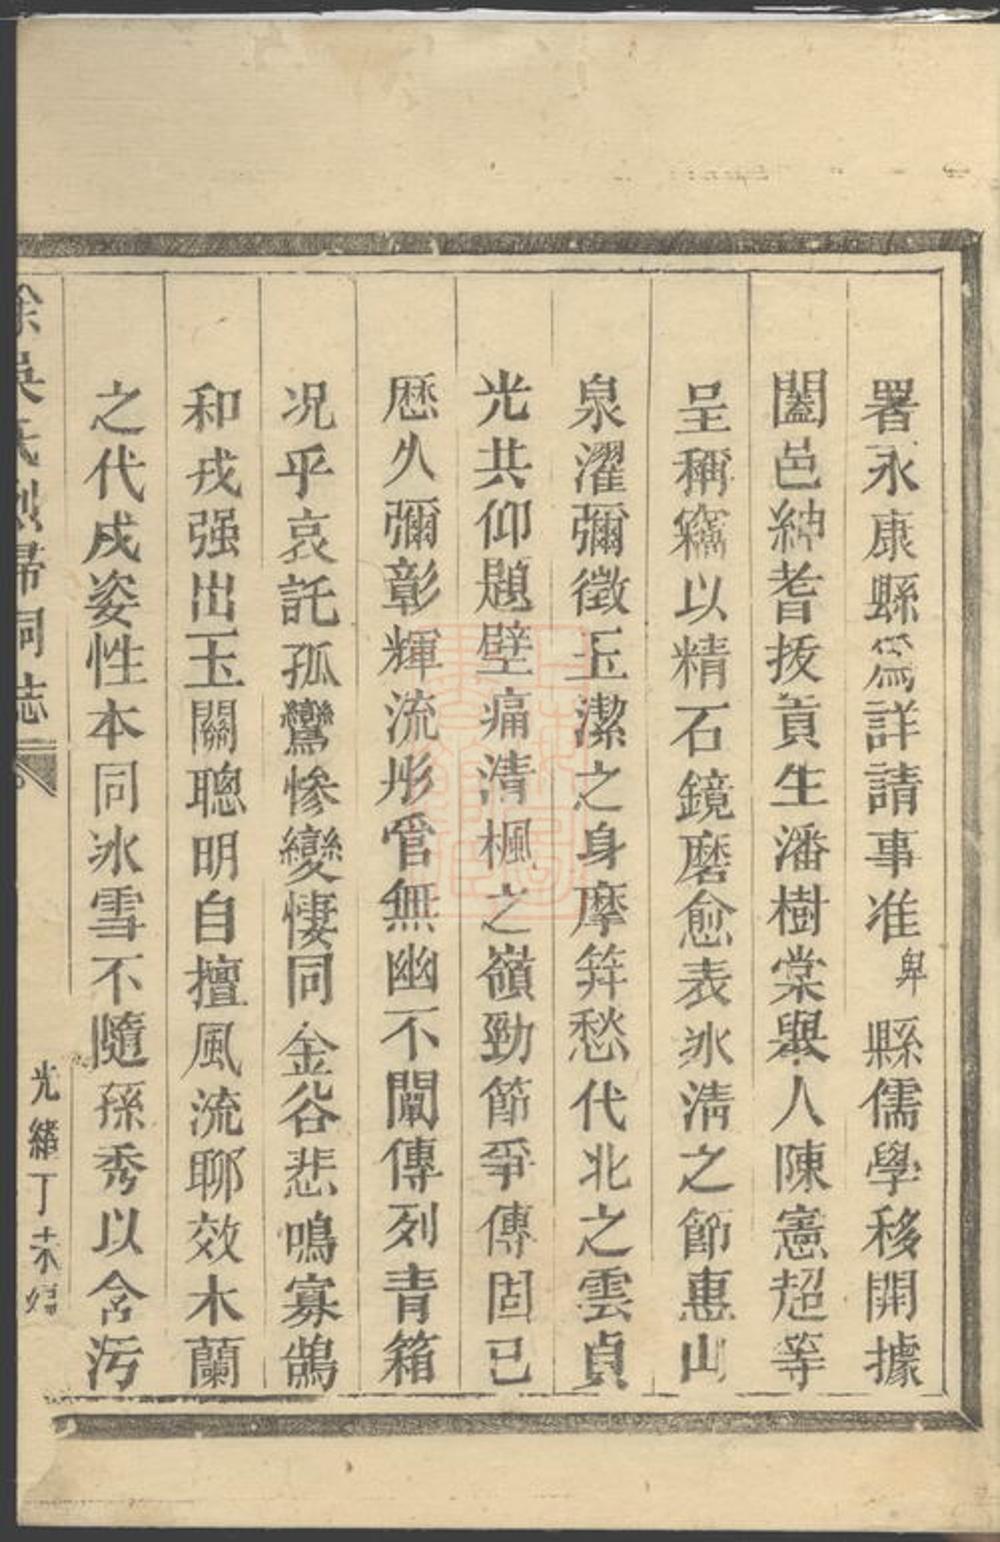 署永康縣爲詳請事准卑縣儒學移開據
闔邑紳耆拔貢生潘樹棠舉人陳憲超等
呈稱竊以精石鏡磨愈表冰清之節惠山
泉濯彌徵玉潔之身摩笄愁代北之雲貞
光共仰題壁痛清楓之嶺勁節爭傳固已
歷久彌彰輝流彤管無幽不闡傳列青箱
况乎哀託孤鸞慘變悽同金谷悲鳴寡鵠
和戎强出玉關聰明自擅風流聊效木蘭
之代戍姿性本同冰雪不隨孫秀以含污
徐吳氏烈婦祠誌
光緒丁未